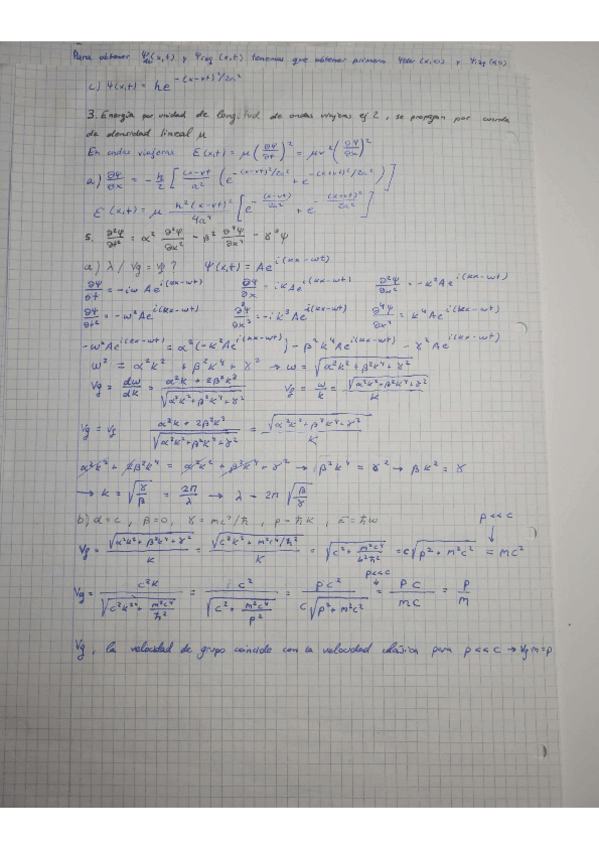 Para obtener Ψder(x,t) y Ψizq(x,t) tenemos que obtener primero Ψder(x,0) y Ψizq(x,0)
c) Ψ(x,t) = he^{-(x-vt)²/2a²}
3. Energía por unidad de longitud de ondas viajeras ej 2, se propagan por cuerda
de densidad lineal μ
En ondas viajeras E(x,t) = μ(∂Ψ/∂t)² = μv²(∂Ψ/∂x)²
a) ∂Ψ/∂x = -h/2 [(x-vt)/a² (e^{-(x-vt)²/2a²} + e^{-(x+vt)²/2a²})]
E(x,t) = μ h²(x-vt)²/4a⁴ [e^{-(x-vt)/2a²} + e^{-(x+vt)²/2a²}]
5. ∂²Ψ/∂t² = α² ∂²Ψ/∂x² - β² ∂⁴Ψ/∂x⁴ - γ²Ψ
a) λ / Vg = Vφ ? Ψ(x,t) = Ae^{i(kx-wt)}
∂Ψ/∂t = -iw Ae^{i(kx-wt)} ∂Ψ/∂x = ikAe^{i(kx-wt)} ∂²Ψ/∂x² = -k²Ae^{i(kx-wt)}
∂²Ψ/∂t² = -w²Ae^{i(kx-wt)} ∂³Ψ/∂x³ = -ik³Ae^{i(kx-wt)} ∂⁴Ψ/∂x⁴ = k⁴Ae^{i(kx-wt)}
-w²Ae^{i(kx-wt)} = α²(-k²Ae^{i(kx-wt)}) - β²k⁴Ae^{i(kx-wt)} - γ²Ae^{i(kx-wt)}
w² = α²k² + β²k⁴ + γ² → w = √(α²k² + β²k⁴ + γ²)
Vg = dw/dk = (α²k + 2β²k³)/√(α²k² + β²k⁴ + γ²) Vφ = w/k = √(α²k² + β²k⁴ + γ²)/k
Vg = Vφ (α²k + 2β²k³)/√(α²k² + β²k⁴ + γ²) = √(α²k² + β²k⁴ + γ²)/k
α²k² + 2β²k⁴ = α²k² + β²k⁴ + γ² → β²k⁴ = γ² → βk² = γ
→ k = √(γ/β) = 2π/λ → λ = 2π √(β/γ)
b) α = c, β = 0, γ = mc²/ħ, p = ħk, E = ħw
p<<c
Vφ = √(α²k² + β²k⁴ + γ²)/k = √(c²k² + m²c⁴/ħ²)/k = √(c² + m²c⁴/k²ħ²) = c√(p² + m²c²) = mc²
p<<c
Vg = c²k/√(c²k² + m²c⁴/ħ²) = c²/√(c² + m²c⁴/p²) = pc²/(c√(p² + m²c²)) = pc/mc = p/m
Vg, la velocidad de grupo coincide con la velocidad clásica para p<<c → Vg m = p